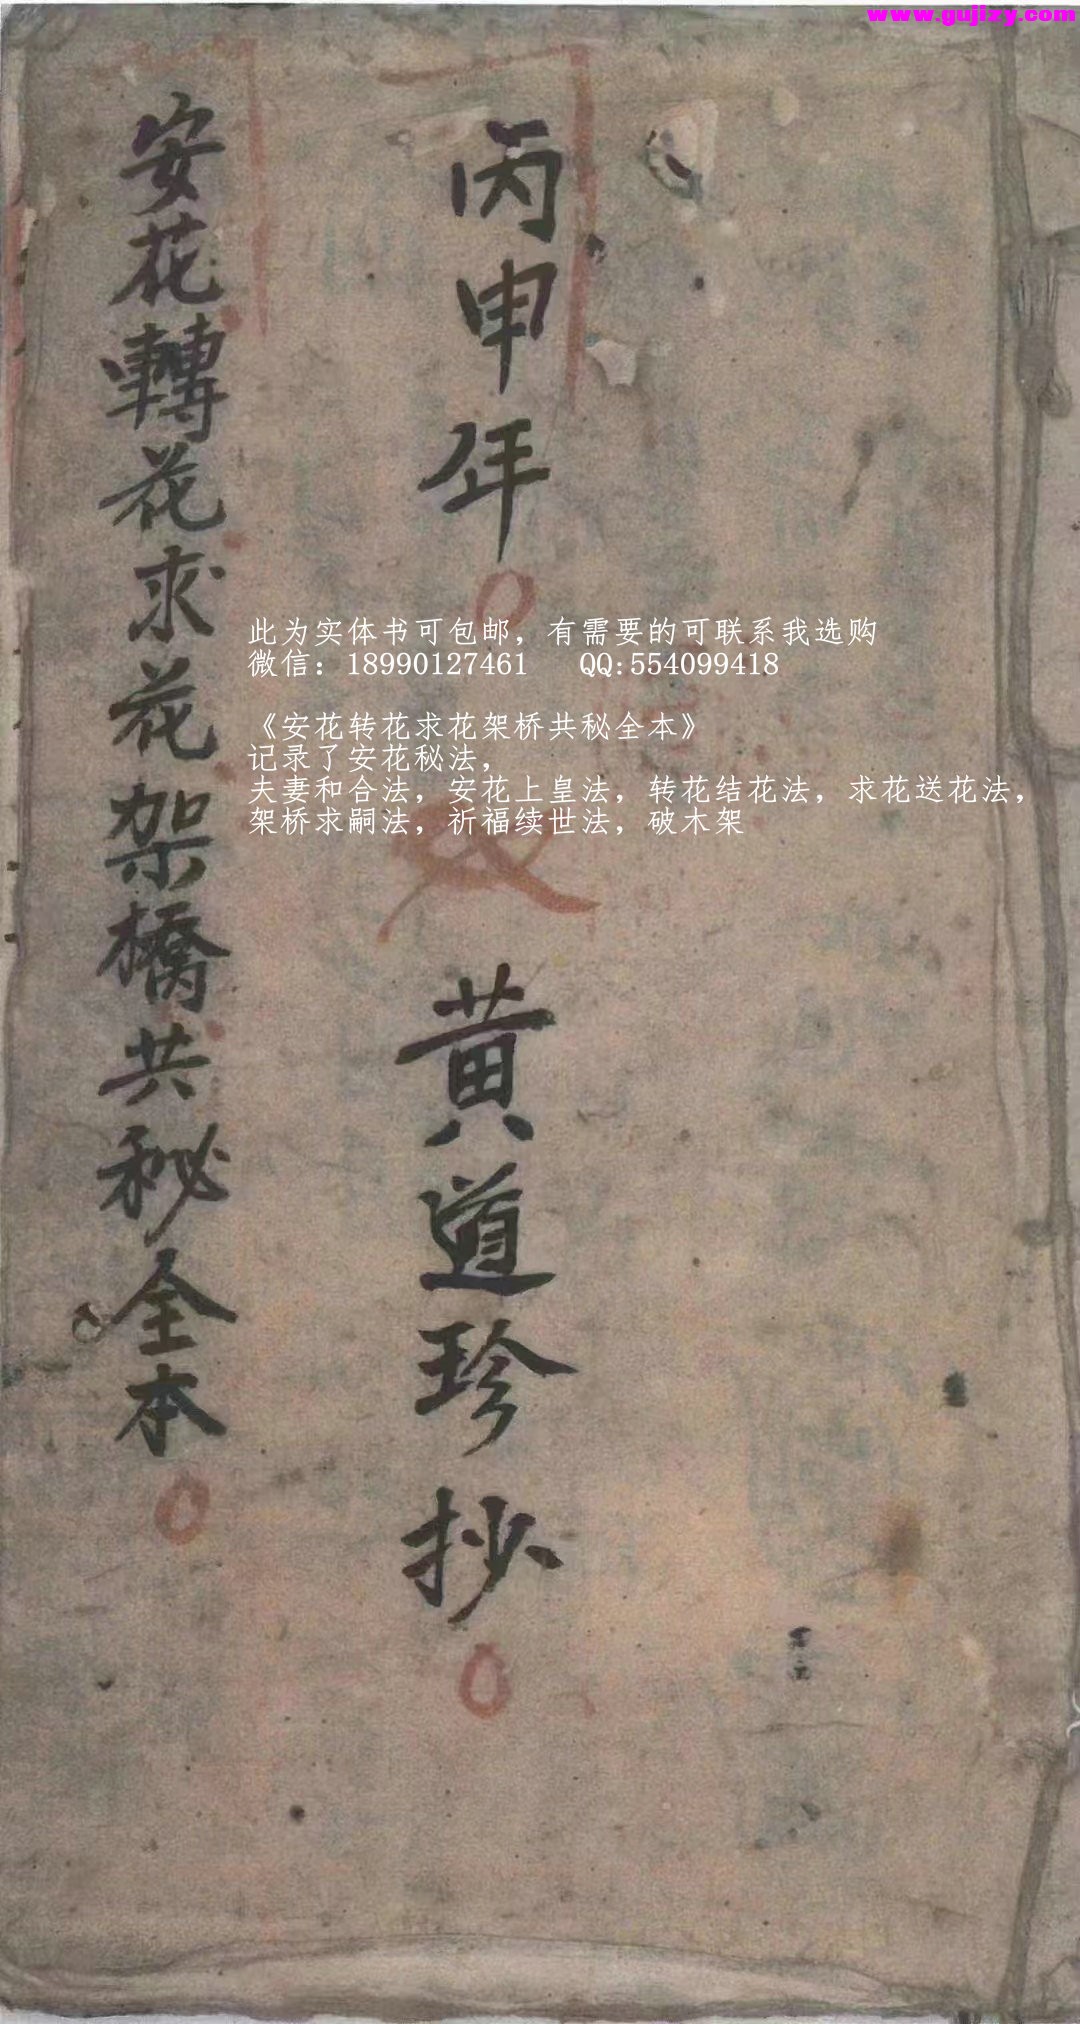 www.gujizy.com
丙申年
黄道珍抄
安花轉花求花架橋共秘全本
此为实体书可包邮，有需要的可联系我选购
微信：18990127461 QQ:554099418
《安花转花求花架桥共秘全本》
记录了安花秘法，
夫妻和合法，安花上皇法，转花结花法，求花送花法，
架桥求嗣法，祈福续世法，破木架